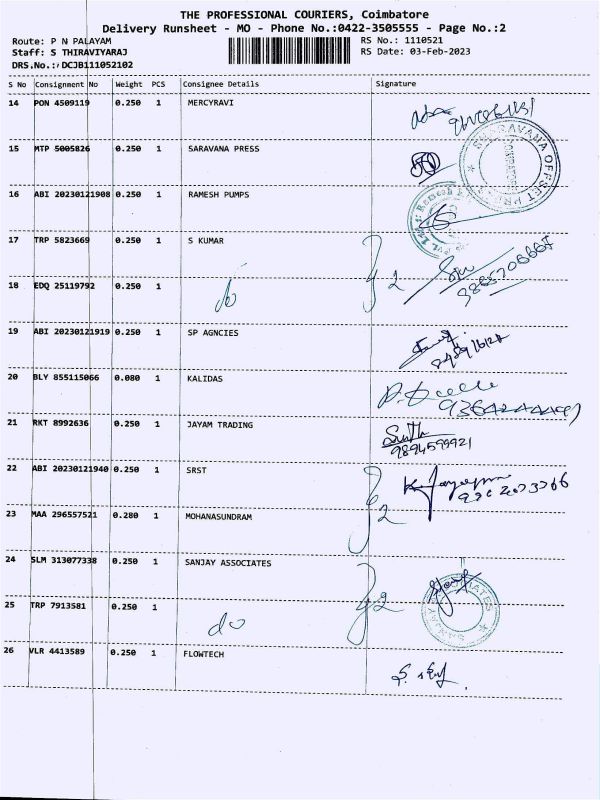 THE PROFESSIONAL COURIERS, Coimbatore
Delivery Runsheet - MO - Phone No.:0422-3505555 - Page No.:2
Route: P N PALAYAM
RS No.: 1110521
Staff: S THIRAVIYARAJ
RS Date: 03-Feb-2023
DRS.No.: DCJB111052102
S No Consignment No Weight PCS Consignee Details Signature
14 PON 4509119 0.250 1 MERCYRAVI
15 MTP 5005826 0.250 1 SARAVANA PRESS
SARAVANA OFFSET PRESS
16 ABI 20230121908 0.250 1 RAMESH PUMPS
17 TRP 5823669 0.250 1 S KUMAR
2
18 EDQ 25119792 0.250 1 do
19 ABI 20230121919 0.250 1 SP AGNCIES
20 BLY 855115066 0.080 1 KALIDAS
21 RKT 8992636 0.250 1 JAYAM TRADING
9894599921
22 ABI 20230121940 0.250 1 SRST
2
23 MAA 296557521 0.280 1 MOHANASUNDRAM
24 SLM 313077338 0.250 1 SANJAY ASSOCIATES
2
SANJAY ASSOCIATES
25 TRP 7913581 0.250 1 do
26 VLR 4413589 0.250 1 FLOWTECH